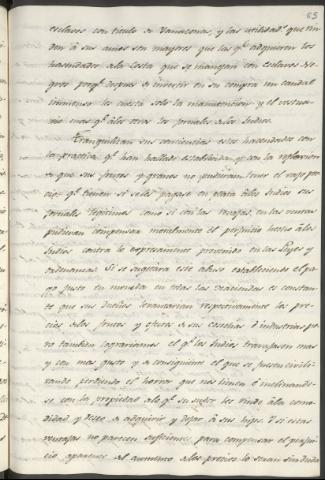 85
esclavos con titulo de Yanaconas, y las utilidad.s que rin
den á sus amos son mayores que las q.e adquieren los
hacendados de la Costa que se manejan con esclavos Ne
gros porq.e despues de invertir en su compra un caudal
inmenso les cuesta solo la manutencion y el vestua
rio mas q.e á los otros los jornales de los Indios.
Tranquilizan sus conciencias estos hacendados con
la practica q.e han hallado establecida, y con la reflexion
de que sus frutos y granos no pudieran tener el vajo pre
cio q.e tienen si se les pagase en plata á los Indios sus
jornales legitimos como si con las revajas en las ventas
pudieran compensar moralmente el perjuicio hecho á los
Indios contra lo expresamente prevenido en las Leyes y
ordenanzas. Si se sugetara este abuso estableciendo el pa
go justo en moneda en todas las Haciendas es constan
te que sus dueños levantarian respectivamente los pre
cios á los frutos y efectos de sus cosechas é industrias pe
ro tambien lograriamos el q.e los Indios travajasen mas
y con mas gusto y de consiguiente el que se fuesen civili
zando perdiendo el horror que nos tienen é inclinando
se con la propiedad de lo q.e su sudor les rinde á la como
didad y deseo de adquirir y dejar á sus hijos. Y si estas
ventajas no parecen suficientes para compensar el perjui
cio aparente del aumento de los precios lo seran sin duda